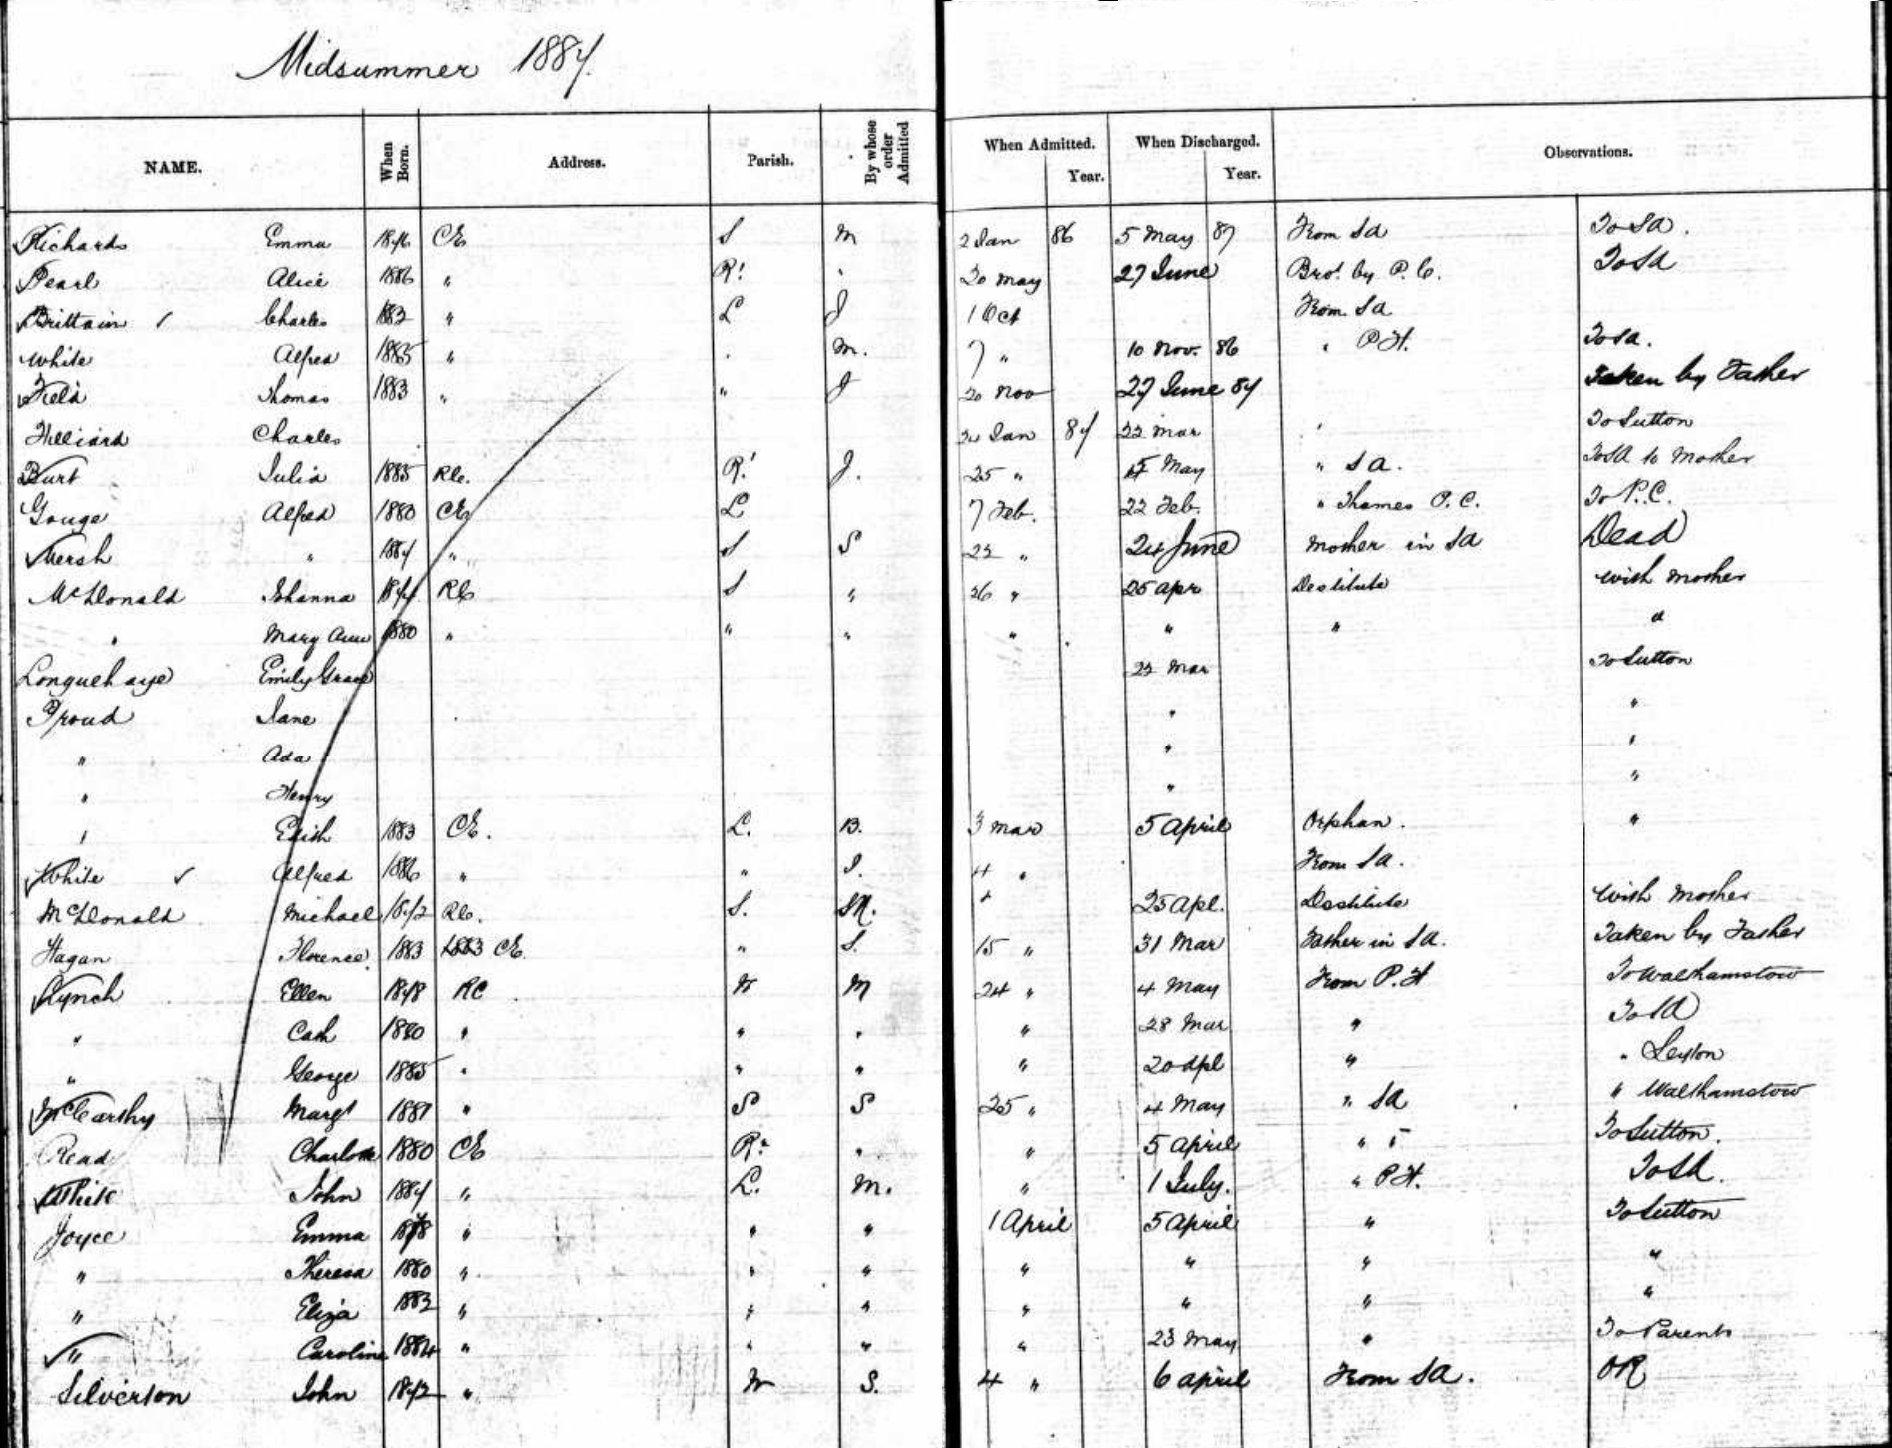 Midsummer 1887.
NAME. When Born. Address. Parish. By whose order Admitted When Admitted. Year. When Discharged. Year. Observations.
Richards Emma 1876 CE S M 2 Jan 86 5 May 87 From SA To SA.
Pearl Alice 1886 " R! " 20 May 27 June Bro! by P.C. To SA
Brittain Charles 1883 " L J 1 Oct From SA
White Alfred 1885 " . M. 7 " 10 Nov. 86 " P.H. To SA.
Field Thomas 1883 " " J 20 Nov 27 June 87 Taken by Father
Hilliard Charles Jan 87 22 Mar " To Sutton
Burt Julia 1885 RC. R! J. 25 " May " SA. To SA to Mother
Gouge Alfred 1880 CE L 7 Feb. 22 Feb. " Thames P.C. To P.C.
Mersh " 1884 " S S 23 " 24 June Mother in SA Dead
McDonald Johanna RC S " 26 " 25 Apr Destitute with Mother
" Mary Ann 1880 " " " " " " "
Longuehaye Emily Grace 22 Mar To Sutton
Proud Jane " "
" Ada " "
" Henry " "
" Edith 1883 CE. L. B. 3 Mar 5 April Orphan. "
White Alfred 1886 " " J. 4 " From SA.
McDonald Michael RC. S. 25 Apl. Destitute with Mother
Hagan Florence 1883 1883 CE. " S. 15 " 31 Mar Father in SA. Taken by Father
Lynch Ellen 1878 RC M 24 " 4 May From P.H To Walthamstow
" Cath 1880 " " " " 28 Mar " To SA
" George 1885 " " " " 20 Apl " " Leyton
McCarthy Margt 1881 " S S 25 " 4 May " SA " Walthamstow
Read Charlotte 1880 CE R! " " 5 April " " To Sutton.
White John 1884 " L. M. " 1 July. " P.H. To SA.
Joyce Emma 1878 " " " 1 April 5 April " To Sutton
" Theresa 1880 " " " " " " "
" Eliza 1882 " " " " " " "
" Caroline 1884 " " " " 23 May " To Parents
Silverton John 1872 " S. 4 " 6 April From SA. OR